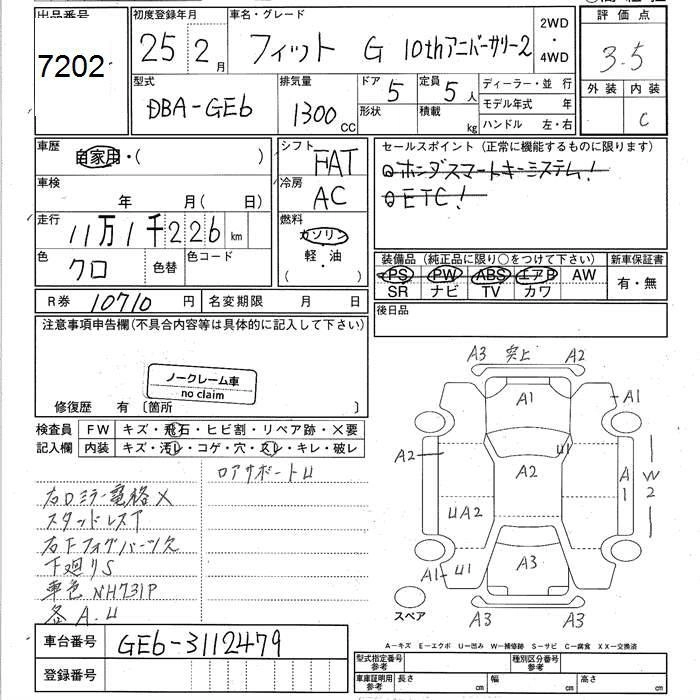 出品番号
7202
初度登録年月 25 2 月
車名・グレード フィット G 10thアニバーサリー2
2WD・4WD
評価点 3.5
外装 内装 C
型式 DBA-GE6
排気量 1300 CC
ドア 5
形状
定員 5 人
積載 kg
ディーラー・並 行
モデル年式 年
ハンドル 左・右
車歴 自家用・( )
シフト FAT
セールスポイント(正常に機能するものに限ります)
ホンダスマートキーシステム!
ETC!
車検 年 月( 日)
冷房 AC
走行 11万1千226 km
燃料 ガソリン
軽・油
( )
色 クロ 色替 色コード
装備品(純正品に限り○をつけて下さい) 新車保証書
PS PW ABS エアB AW
SR ナビ TV カワ
有・無
R券 10710 円 名変期限 月 日
後日品
注意事項申告欄(不具合内容等は具体的に記入して下さい)
ノークレーム車
no claim
修復歴 有〔箇所 〕
検査員記入欄
FW キズ・飛石・ヒビ割・リペア跡・×要
内装 キズ・汚レ・コゲ・穴・スレ・キレ・破レ
ロアサポートU
右Dミラー電格×
スタッドレスT
右Fフォグパーツ欠
下廻りS
車色 NH731P
各A.U
A3 突上 A2
A1
A1
A2
U1
A2
A1
W2
UA2
A1 U1
A3
スペア
A3 A3
A-キズ E-エクボ U-凹み W-補修跡 S-サビ C-腐食 XX-交換済
車台番号 GE6-3112479
登録番号
型式指定番号 参考
種別区分番号 参考
車庫証明用 参考 長さ cm 幅 cm 高さ cm